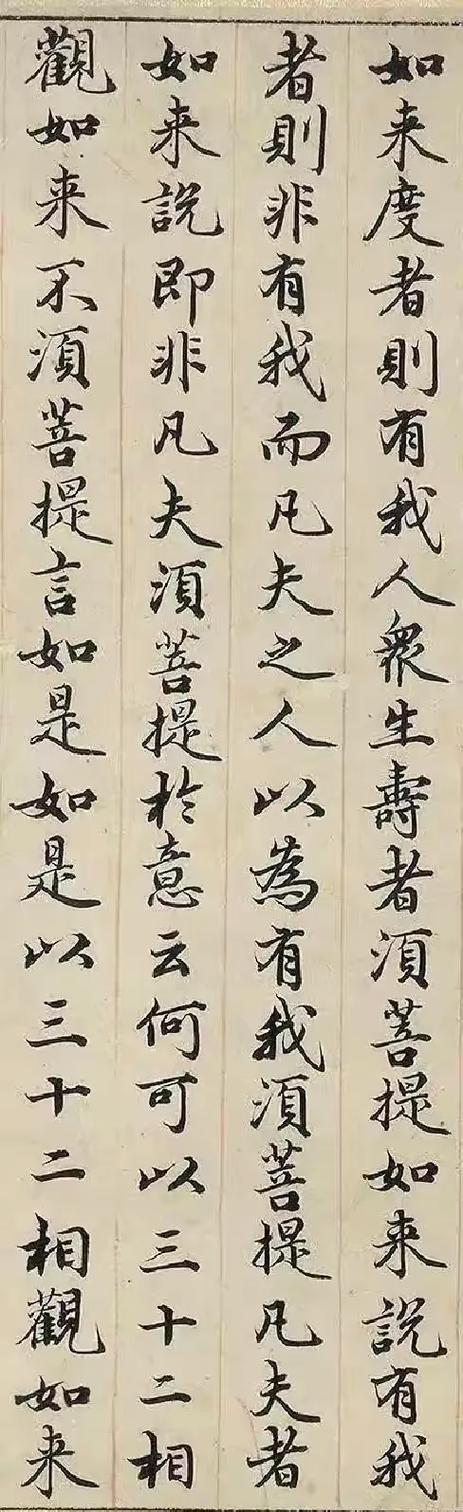 如来度者則有我人衆生壽者湏菩提如来説有我
者則非有我而凡夫之人以為有我湏菩提凡夫者
如来説即非凡夫湏菩提於意云何可以三十二相
觀如来不湏菩提言如是如是以三十二相觀如来